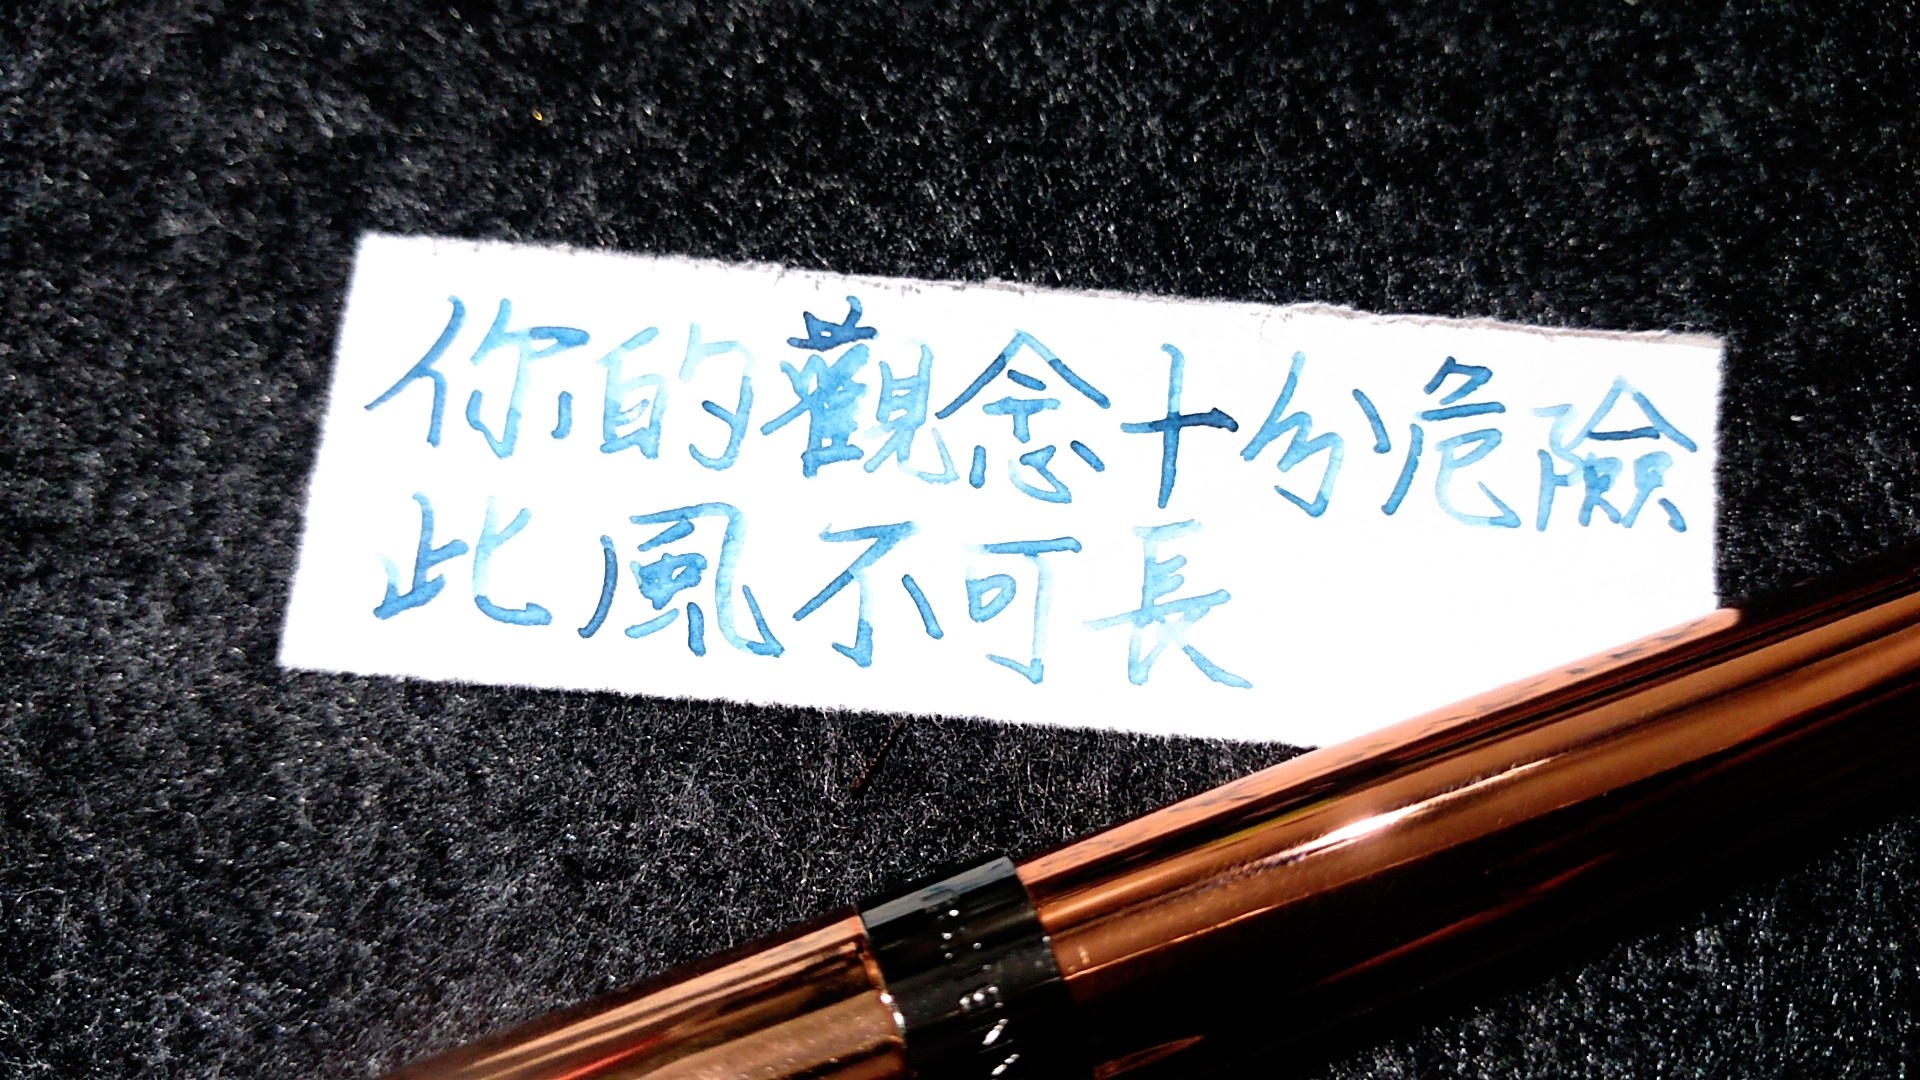 你的觀念十分危險
此風不可長